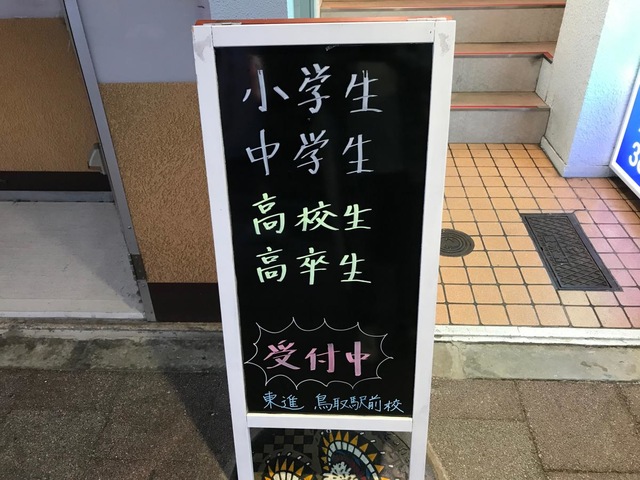 小学生
中学生
高校生
高卒生
受付中
東進 鳥取駅前校